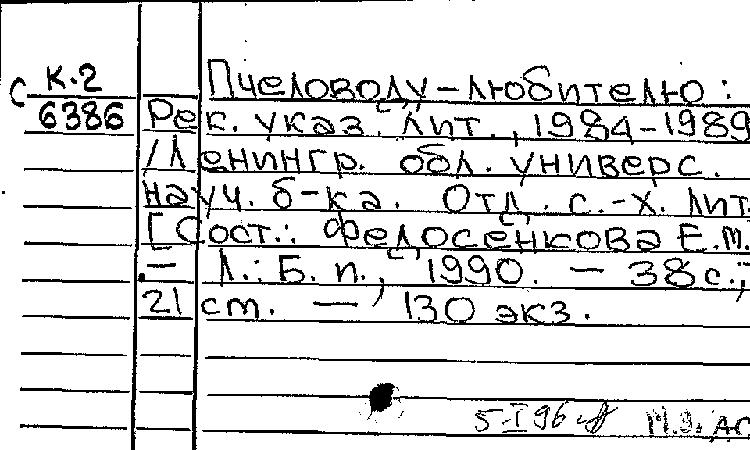 С К.2
6386
Пчеловоду-любителю:
Рек. указ. лит., 1984-1989
/Ленингр. обл. универс.
науч. б-ка. Отд. с.-х. лит.
[Сост.: Федосенкова Е.М.
— Л.: Б. п., 1990. — 38с.;
21 ст. — 130 экз.
5-I 96